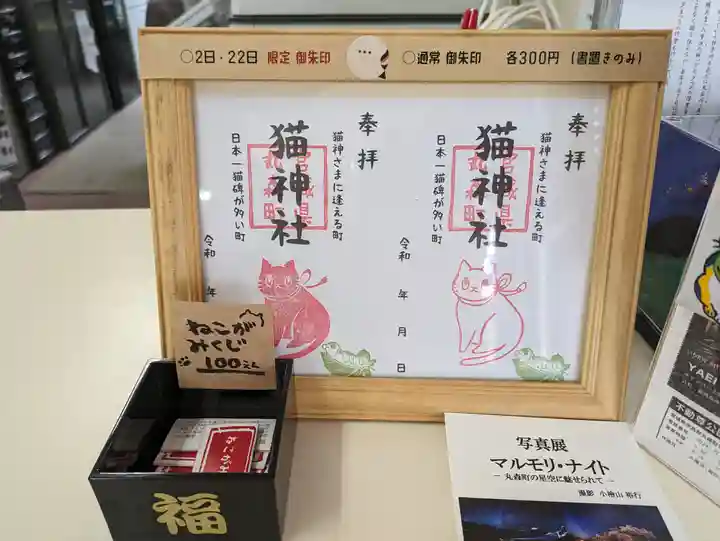 ○2日・22日 限定 御朱印
○通常 御朱印 各300円 (書置きのみ)
奉拝
猫神さまに逢える町
猫神社
宮城県
丸森町
日本一猫碑が多い町
令和 年
奉拝
猫神さまに逢える町
猫神社
宮城県
丸森町
日本一猫碑が多い町
令和 年 月 日
ねこがみくじ
100えん
福
写真展
マルモリ・ナイト
― 丸森町の星空に魅せられて ―
撮影 小檜山 裕行
YAE
不動尊公